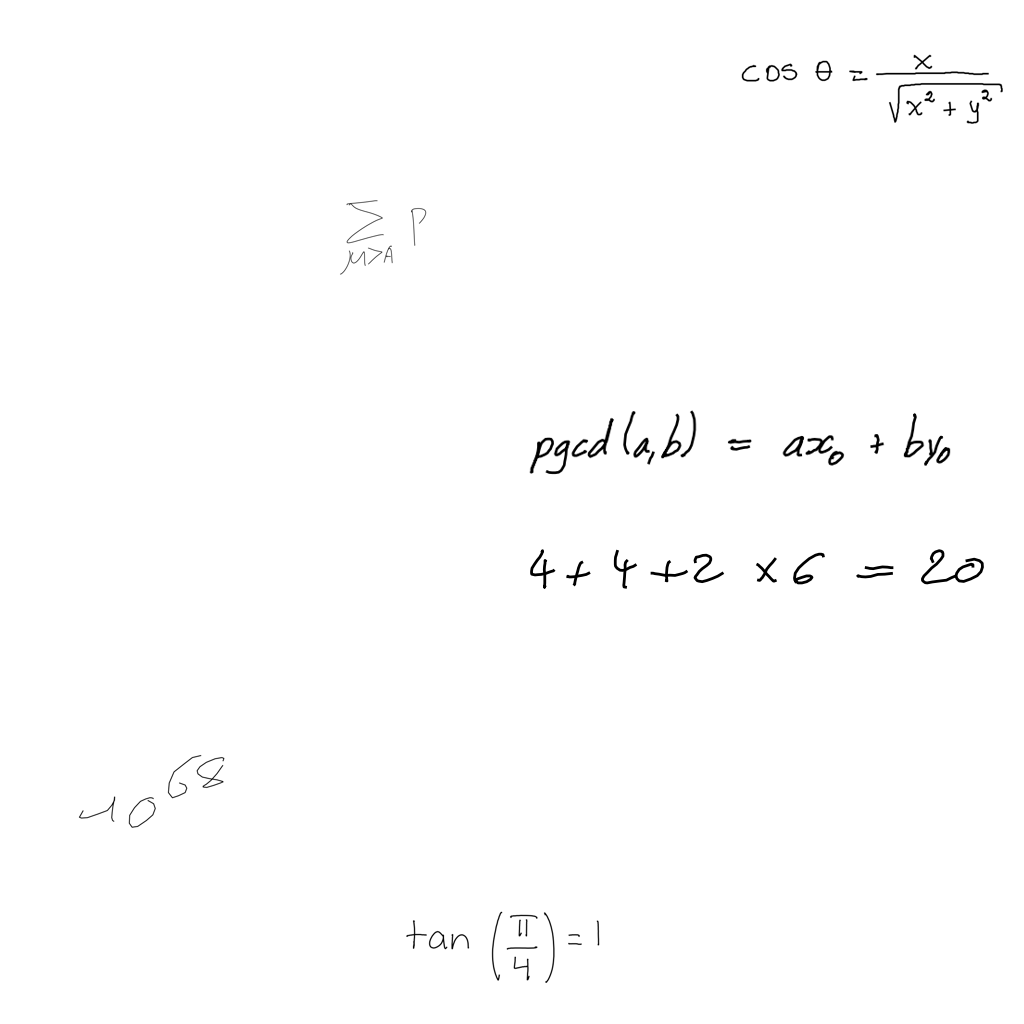 cos θ = x / √(x² + y²)
∑_{μ>A} p
pgcd(a,b) = ax₀ + by₀
4 + 4 + 2 × 6 = 20
10⁶⁸
tan (π/4) = 1